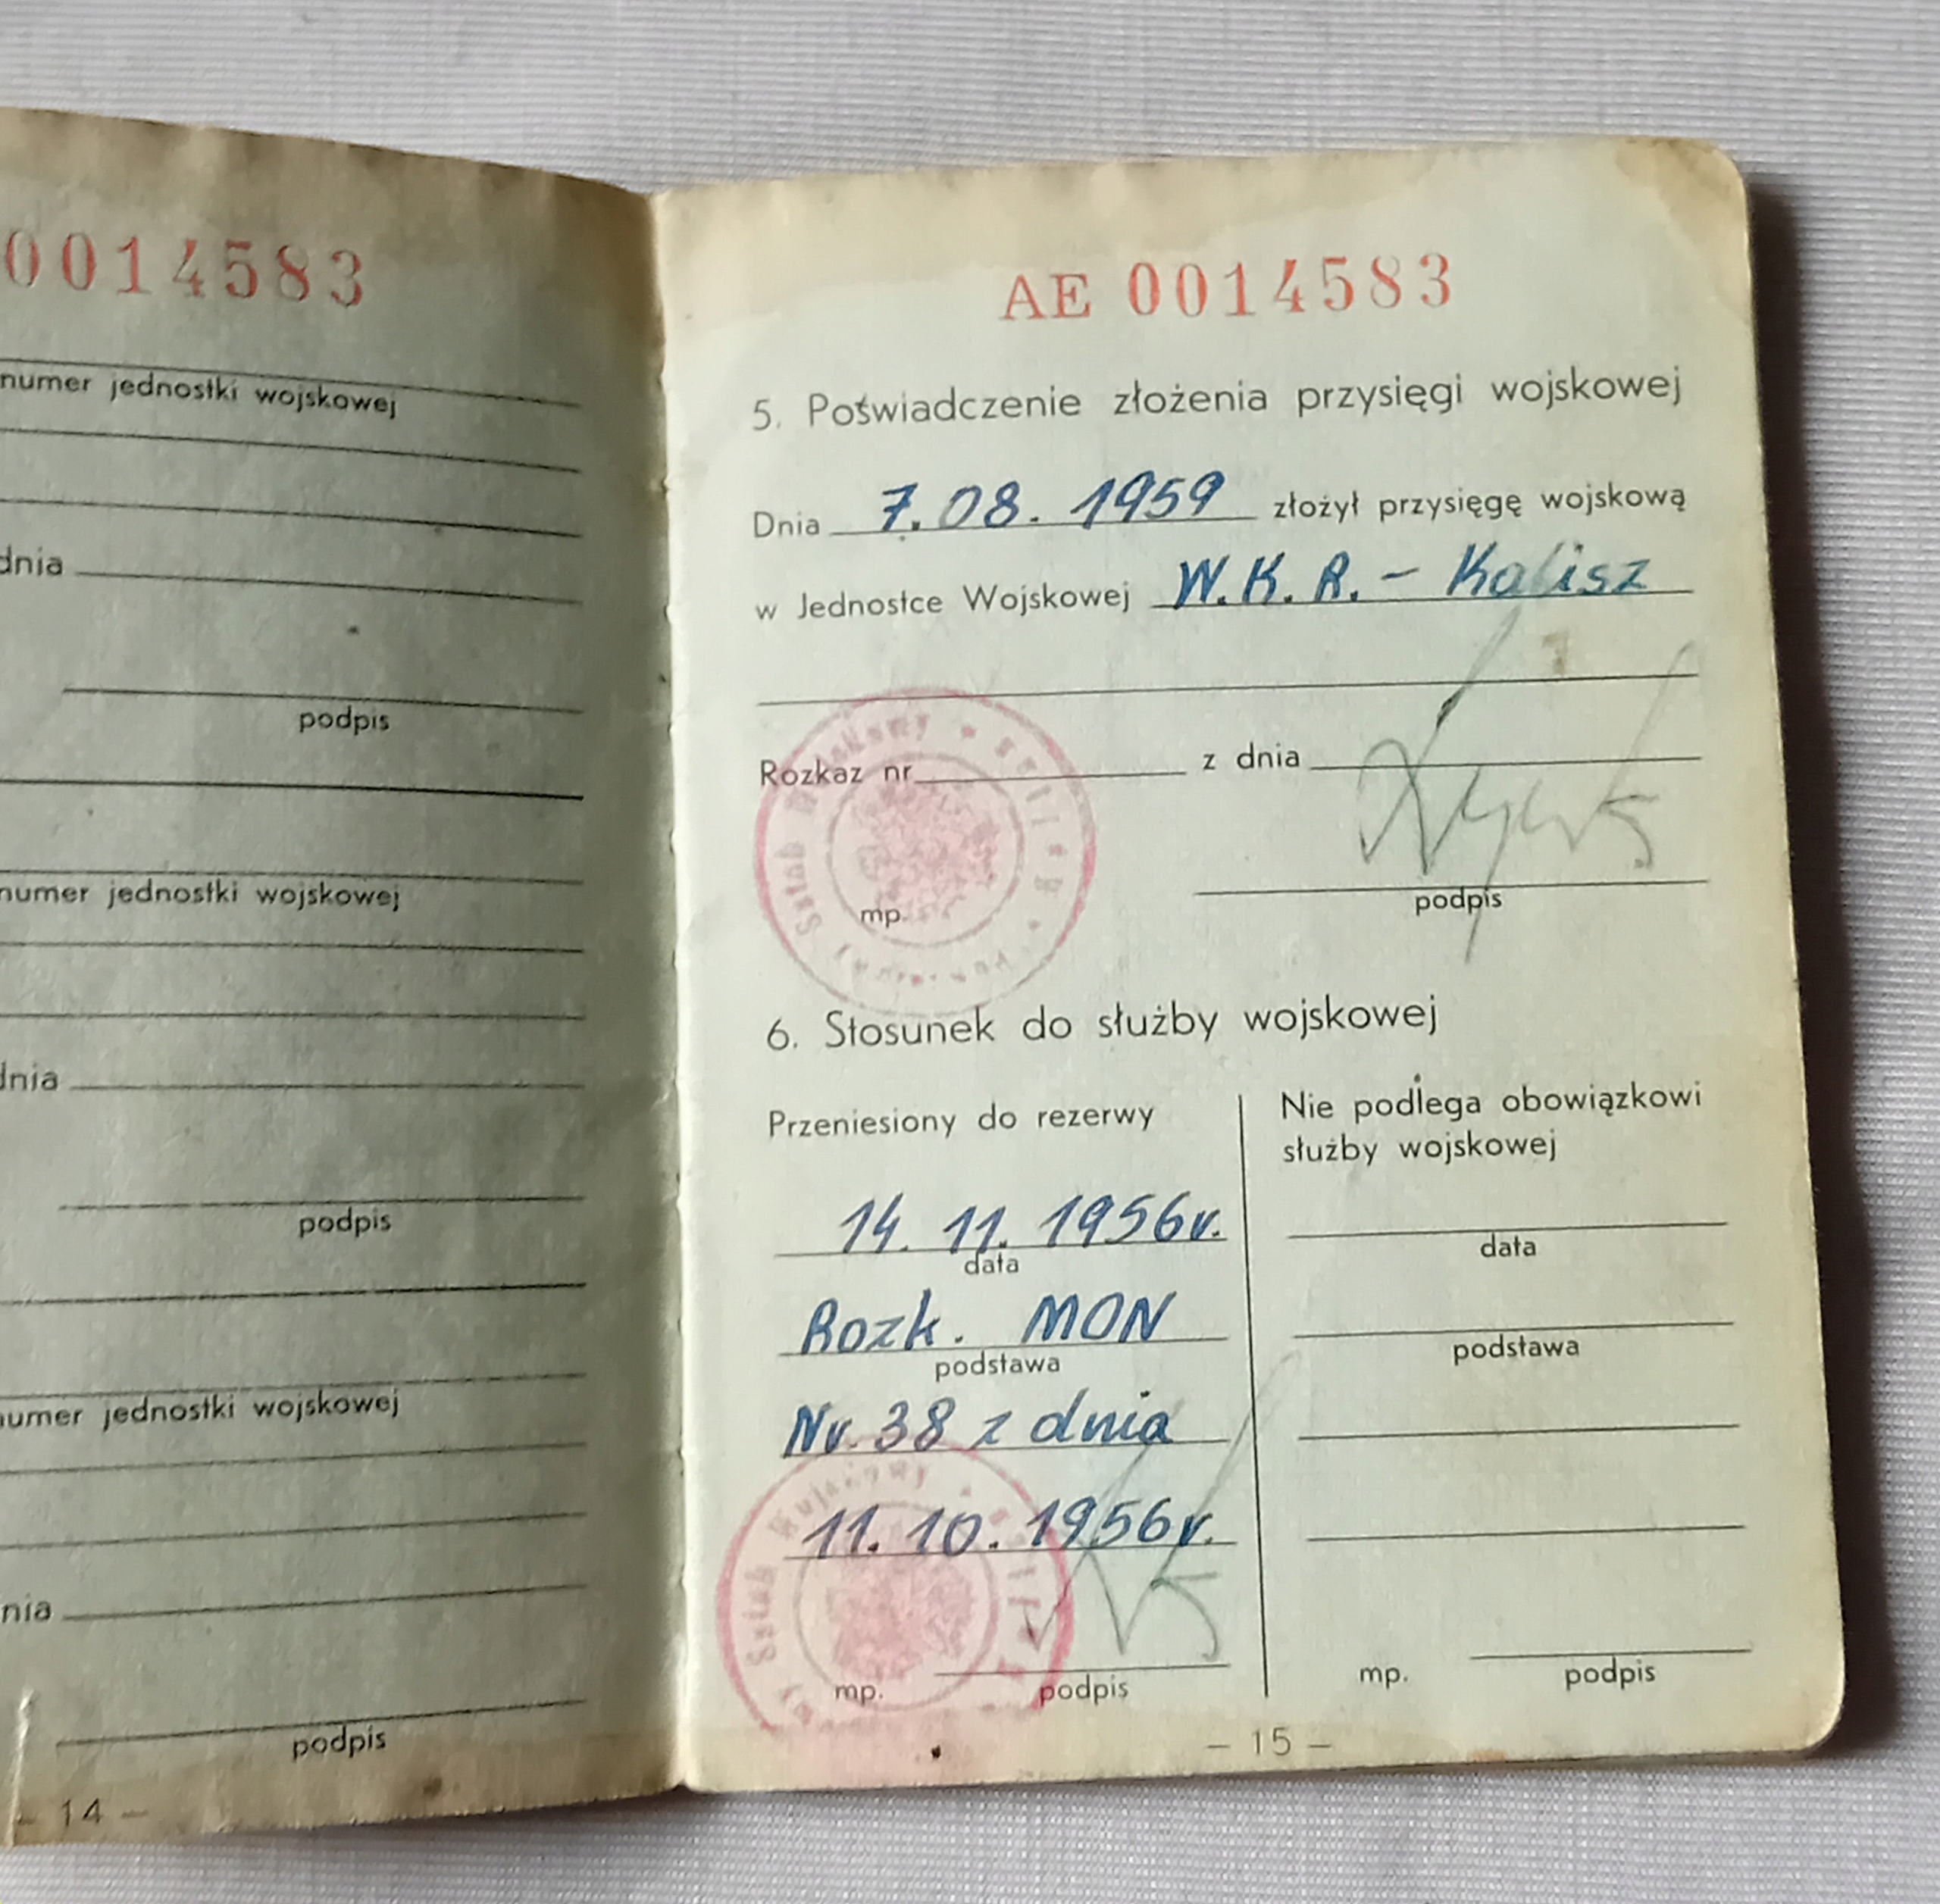 0014583
numer jednostki wojskowej
dnia
podpis
numer jednostki wojskowej
dnia
podpis
numer jednostki wojskowej
nia
podpis
– 14 –
AE 0014583
5. Poświadczenie złożenia przysięgi wojskowej
Dnia 7.08.1959 złożył przysięgę wojskową
w Jednostce Wojskowej W.K.R. – Kalisz
Rozkaz nr z dnia
mp.
podpis
6. Stosunek do służby wojskowej
Przeniesiony do rezerwy
14.11.1956r.
data
Rozk. MON
podstawa
Nr. 38 z dnia
11.10.1956r.
mp. podpis
Nie podlega obowiązkowi
służby wojskowej
data
podstawa
mp. podpis
– 15 –